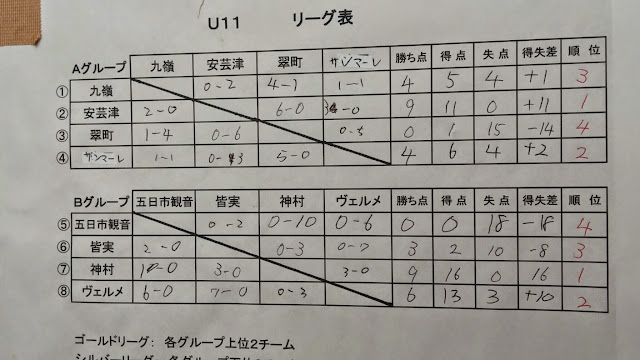 U11 リーグ表
Aグループ 九嶺 安芸津 翠町 サンマーレ 勝ち点 得点 失点 得失差 順位
① 九嶺 0-2 4-1 1-1 4 5 4 +1 3
② 安芸津 2-0 6-0 -0 9 11 0 +11 1
③ 翠町 1-4 0-6 0-5 0 1 15 -14 4
④ サンマーレ 1-1 0-3 5-0 4 6 4 +2 2
Bグループ 五日市観音 皆実 神村 ヴェルメ 勝ち点 得点 失点 得失差 順位
⑤ 五日市観音 0-2 0-10 0-6 0 0 18 -18 4
⑥ 皆実 2-0 0-3 0-7 3 2 10 -8 3
⑦ 神村 10-0 3-0 3-0 9 16 0 16 1
⑧ ヴェルメ 6-0 7-0 0-3 6 13 3 +10 2
ゴールドリーグ: 各グループ上位2チーム